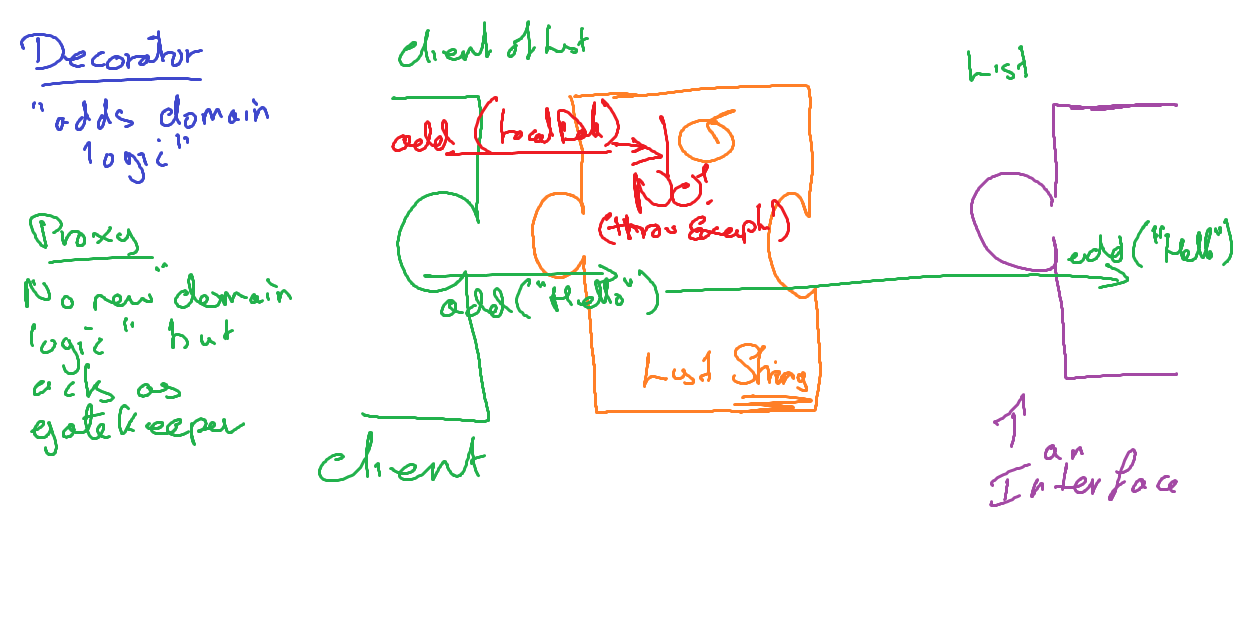 Decorator
"adds domain
logic"
Proxy
No new "domain
logic" but
acts as
gatekeeper
Client of List
add (LocalDate)
No!
(throw Exception)
add("Hello")
List String
Client
List
add("Hello")
an
Interface